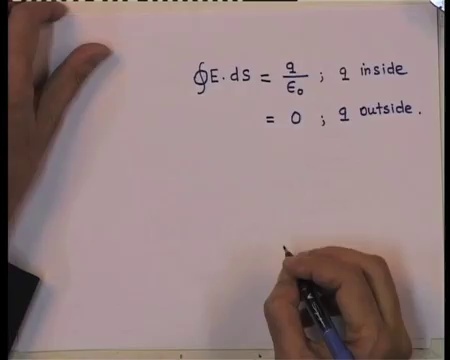 ∮E.dS = q/ε₀ ; q inside
= 0 ; q outside.